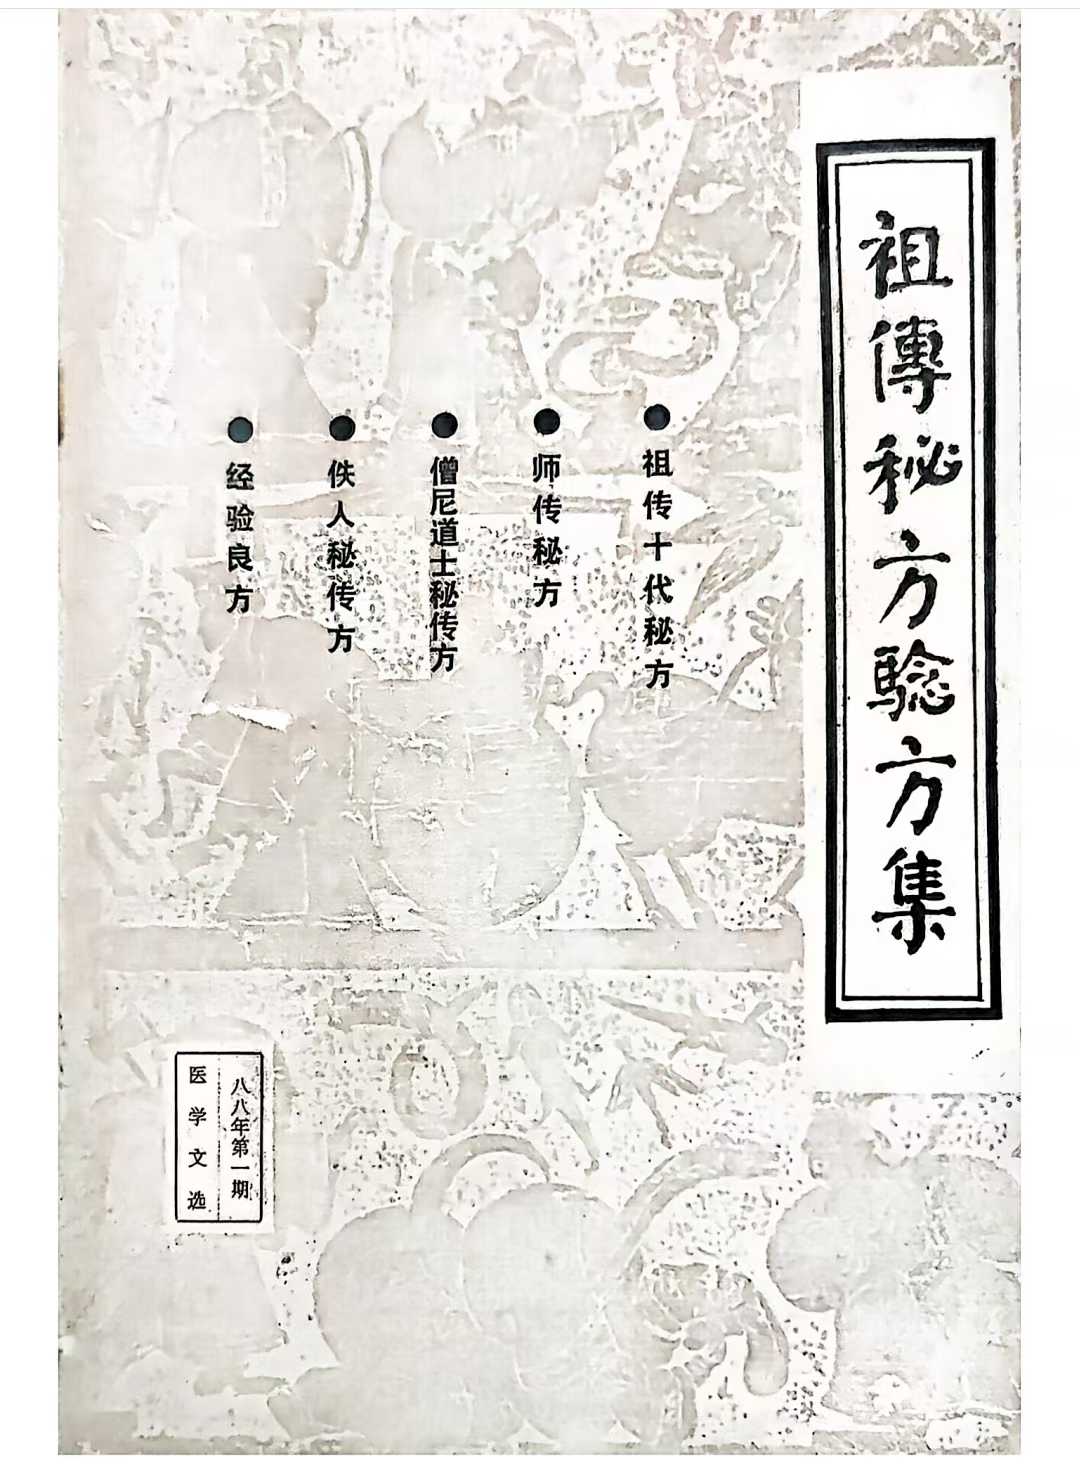 祖傳秘方驗方集
祖传十代秘方
师传秘方
僧尼道士秘传方
佚人秘传方
经验良方
八八年第一期
医学文选